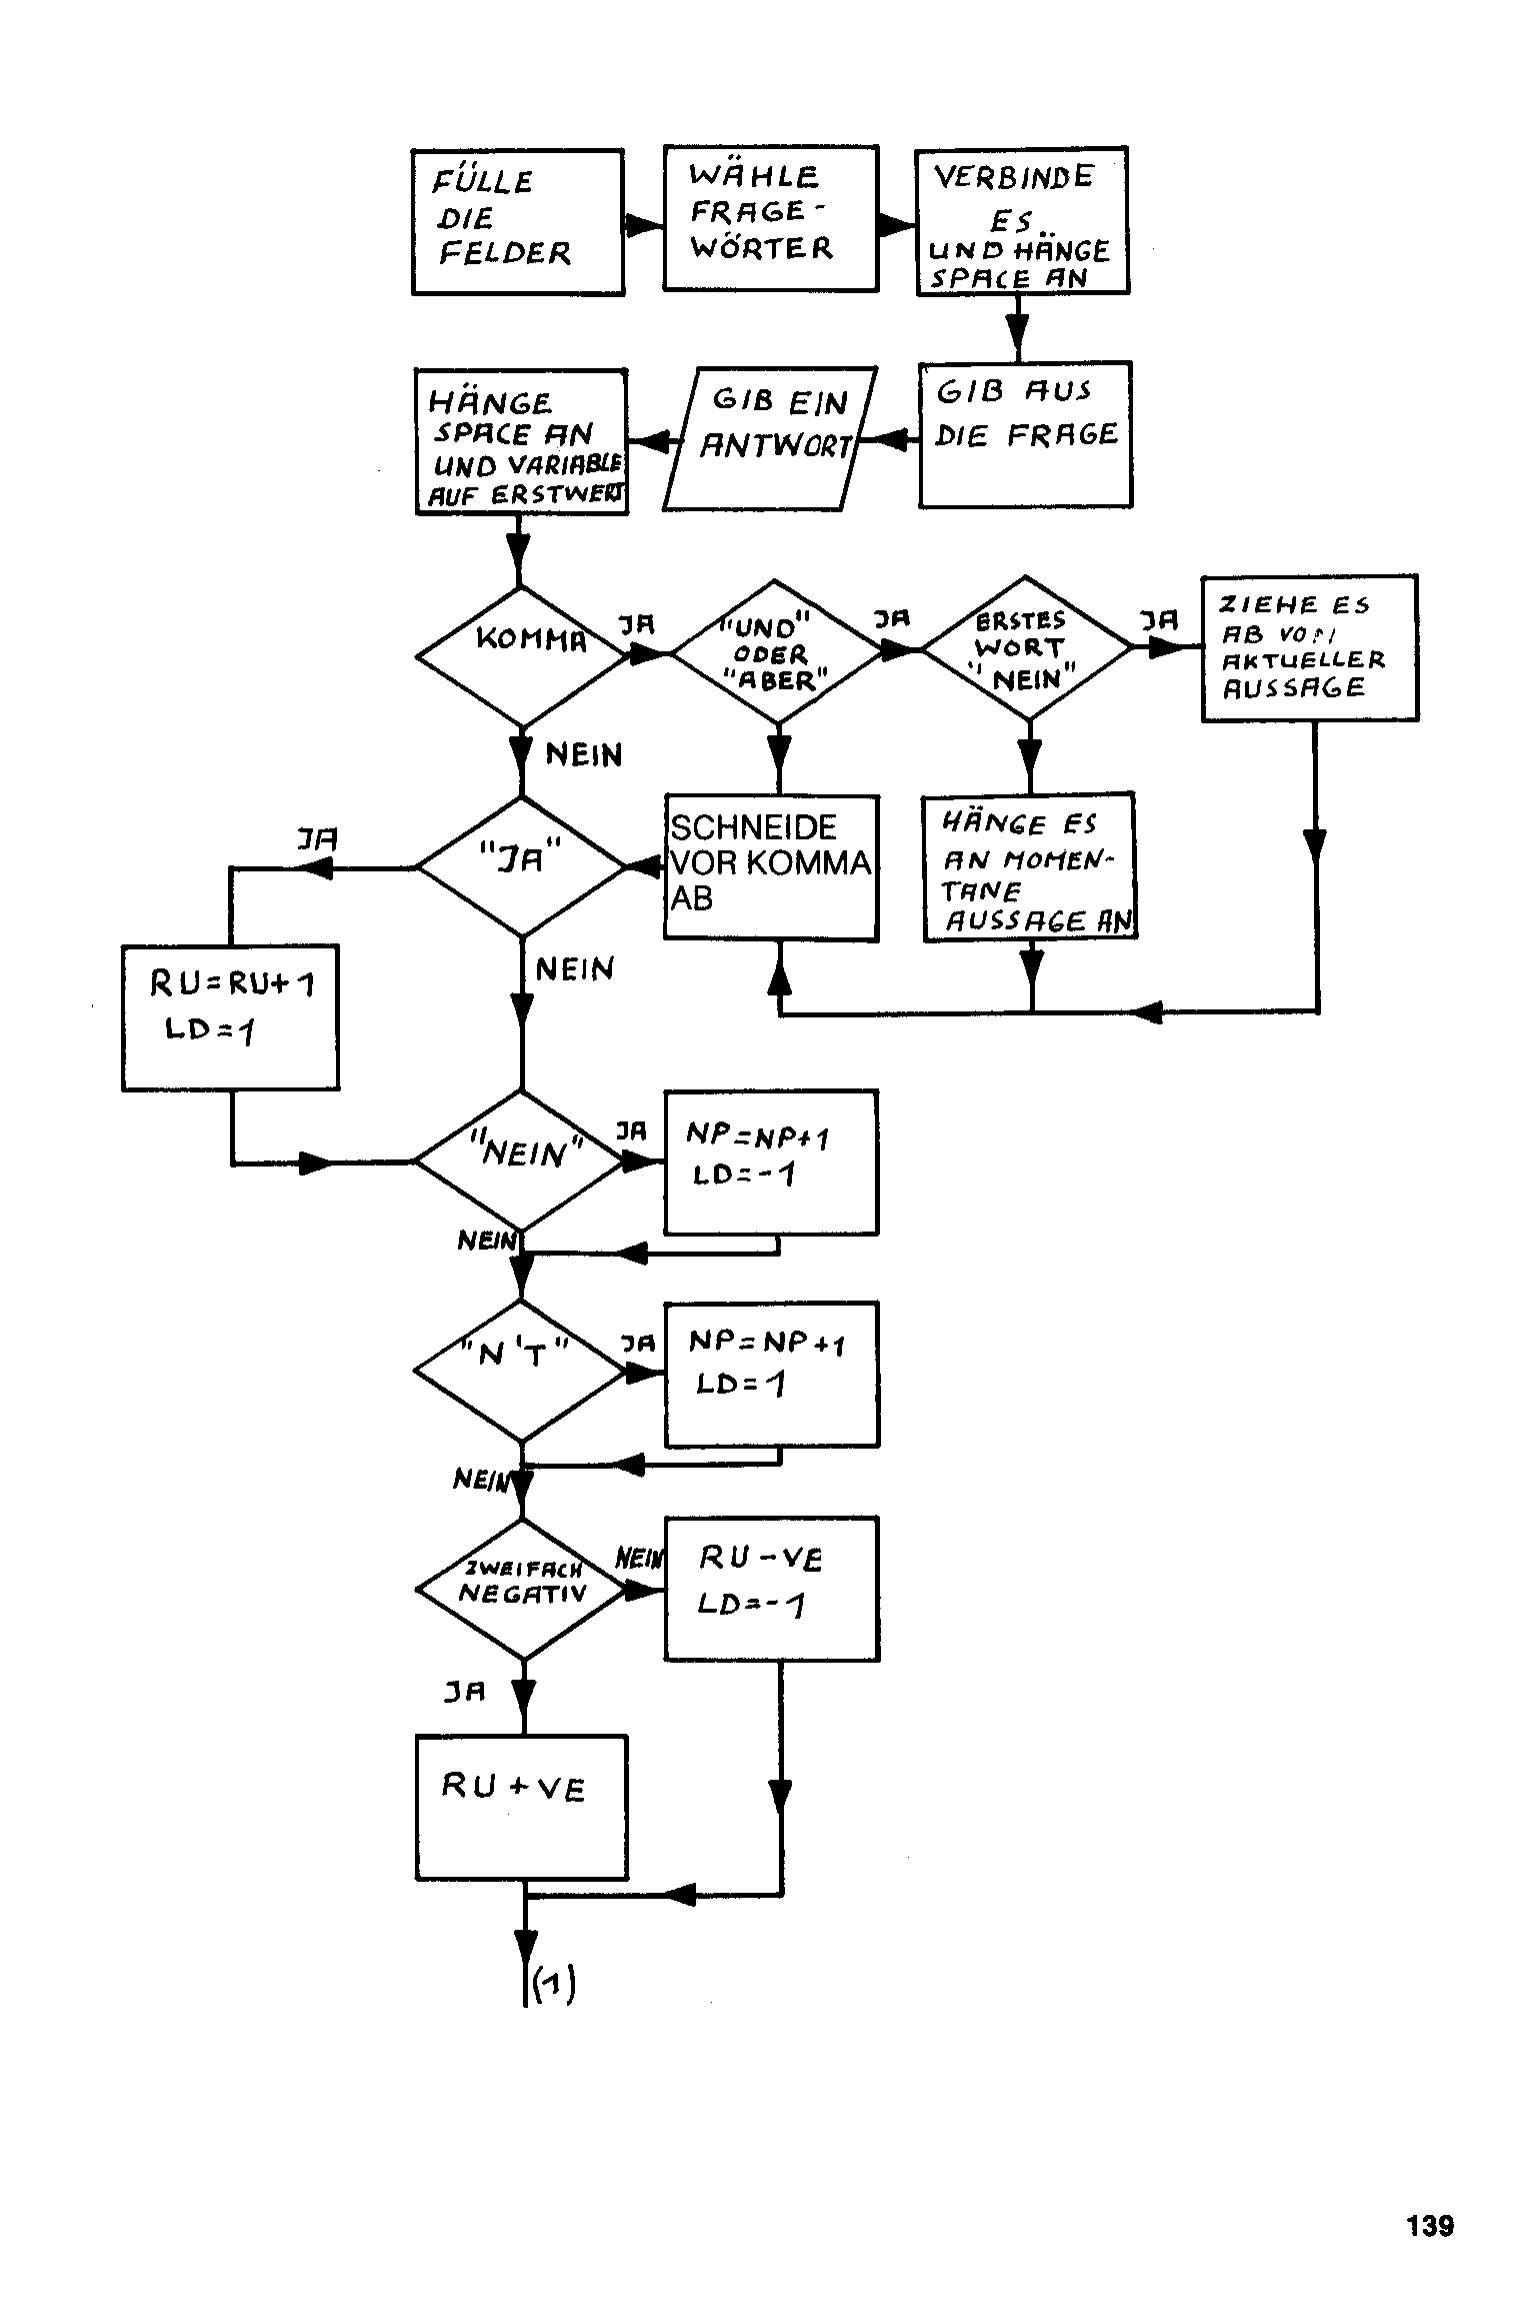 FÜLLE
DIE
FELDER
WÄHLE
FRAGE-
WÖRTER
VERBINDE
ES
UND HÄNGE
SPACE AN
GIB AUS
DIE FRAGE
GIB EIN
ANTWORT
HÄNGE
SPACE AN
UND VARIABLE
AUF ERSTWERT
KOMMA
JA
"UND"
ODER
"ABER"
JA
ERSTES
WORT
"NEIN"
JA
ZIEHE ES
AB VON
AKTUELLER
AUSSAGE
NEIN
HÄNGE ES
AN MOMEN-
TANE
AUSSAGE AN
SCHNEIDE
VOR KOMMA
AB
"JA"
JA
NEIN
RU=RU+1
LD=1
"NEIN"
JA
NP=NP+1
LD=-1
NEIN
"N'T"
JA
NP=NP+1
LD=1
NEIN
ZWEIFACH
NEGATIV
NEIN
RU-VE
LD=-1
JA
RU+VE
(1)
139